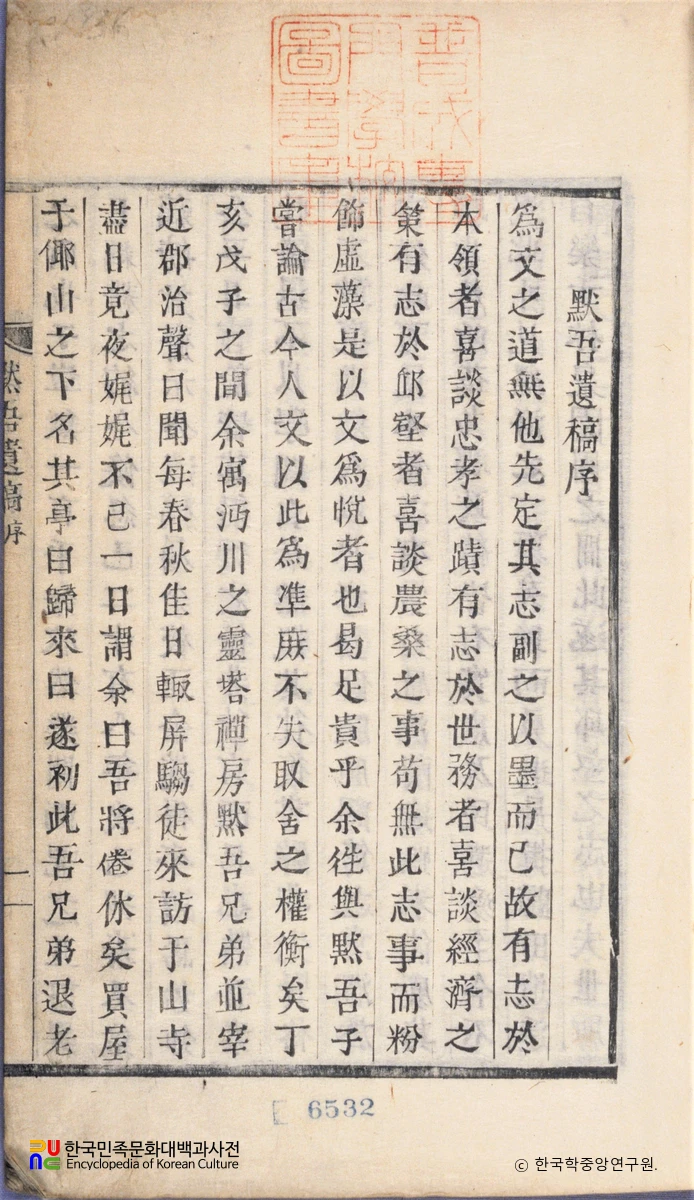 普成專
門學校
圖書*
默吾遺稿序
爲文之道無他先定其志副之以墨而已故有志於
本領者喜談忠孝之蹟有志於世務者喜談經濟之
策有志於邱壑者喜談農桑之事苟無此志事而粉
飾虛藻是以文爲悅者也曷足貴乎余徃與默吾子
嘗論古今人文以此爲準庶不失取舍之權衡矣丁
亥戊子之間余寓沔川之靈塔禪房默吾兄弟並宰
近郡治聲日聞每春秋佳日輙屏騶徒來訪于山寺
盡日竟夜娓娓不已一日謂余曰吾將倦休矣買屋
于倻山之下名其亭曰歸來曰遂初此吾兄弟退老
默吾遺稿 序
一
6532
한국민족문화대백과사전
Encyclopedia of Korean Culture
ⓒ 한국학중앙연구원.